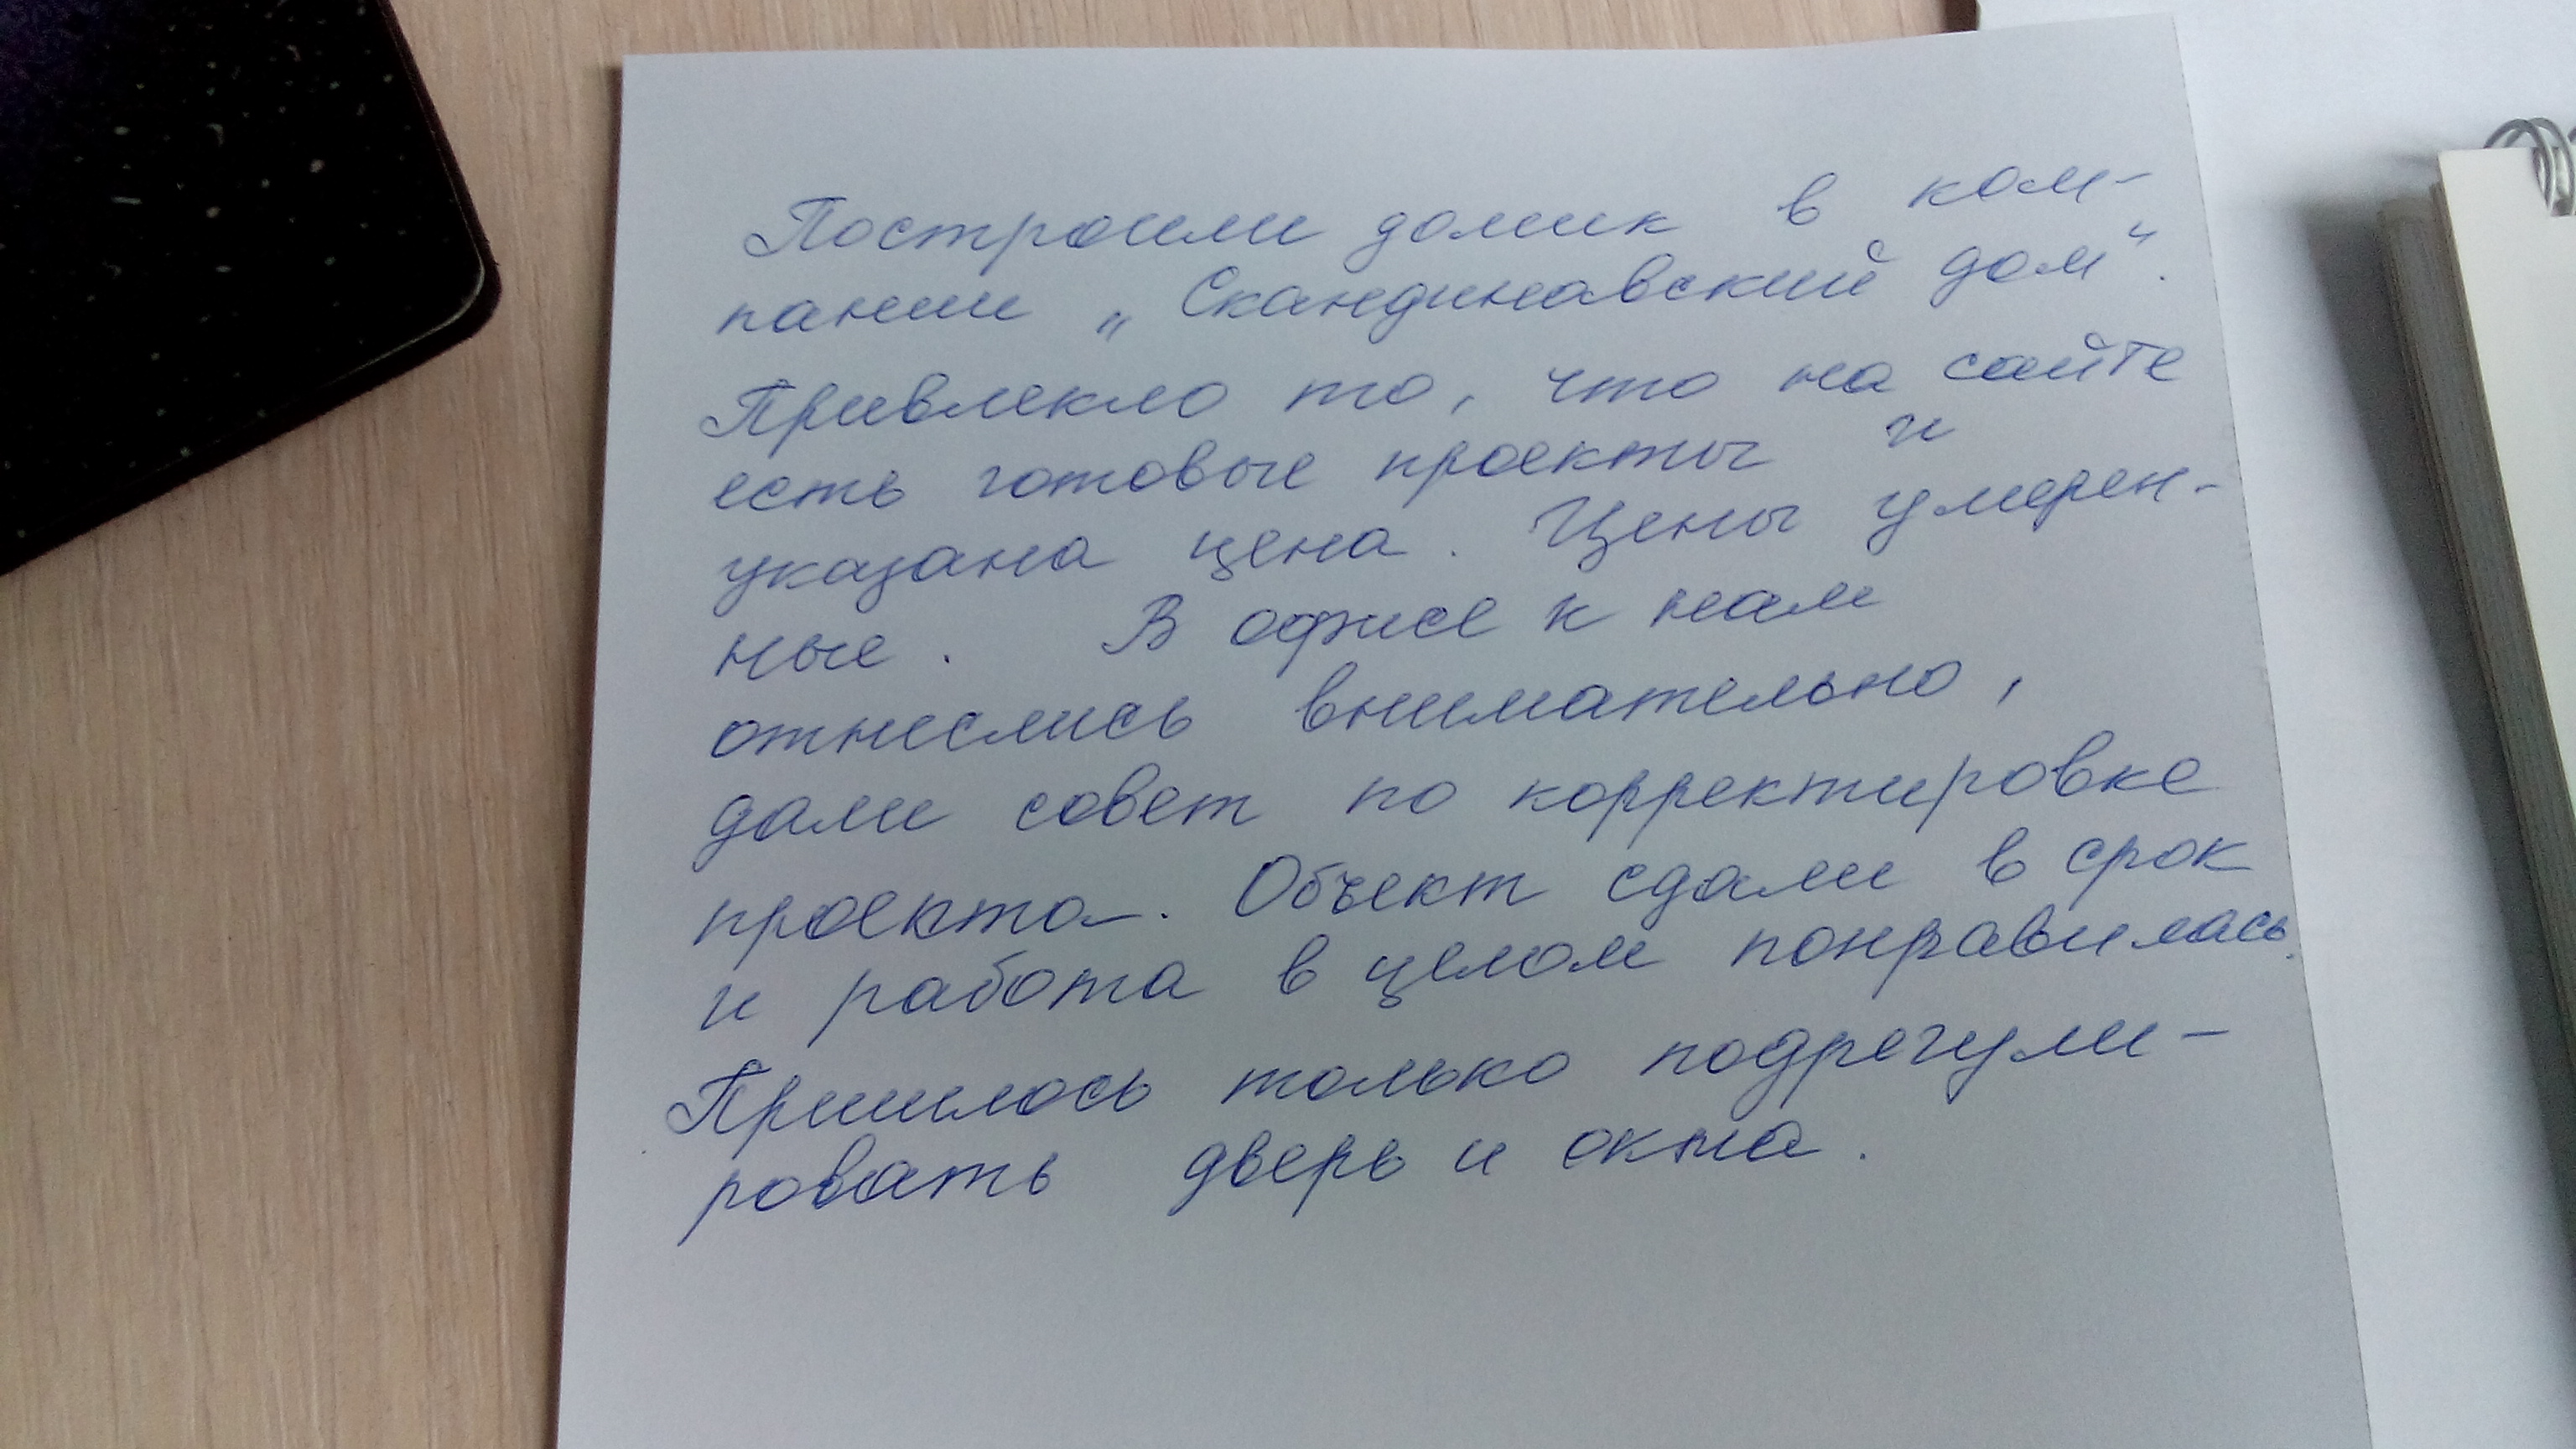 Построили домик в ком-
пании „Скандинавский дом“.
Привлекло то, что на сайте
есть готовые проекты и
указана цена. Цены умерен-
ные. В офисе к нам
отнеслись внимательно,
дали совет по корректировке
проекта. Объект сдали в срок
и работа в целом понравилась.
Пришлось только подрегули-
ровать дверь и окна.